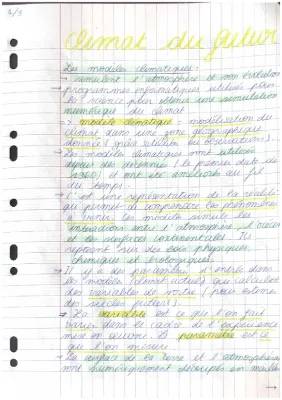 1/3
Climat du futur
Les modèles climatiques :
simulent l'atmosphère et son évolution
→ programmes informatiques utilisés par
la science pour obtenir une simulation
numérique du climat
> modèle climatique : modélisation du
climat dans une zone géographique
donnée (grâce relation ou observations).
→ Les modèles climatiques sont utilisés
depuis des décennies ( le premier date de
) et ont été améliorés au fil
du temps.
→ C'est une représentation de la réalité
qui permet de comprendre les phénomènes
à venir. Les modèles simule les
interactions entre l'atmosphère, l'océan
et les surfaces continentales. Ils
reposent sur des lois physiques,
chimiques et biologiques.
→ Il y a des paramètres d'entrée dans
les modèles (climat actuel) qui calculent
des variables de sortie (pour estimer
des siècles futurs).
→ La variable est ce que l'on fait
varier dans le cadre de l'expérience
mise en œuvre. Le paramètre est ce
que l'on mesure.
→ La surface de la Terre et l'atmosphère
sont numériquement découpés en mailles
→